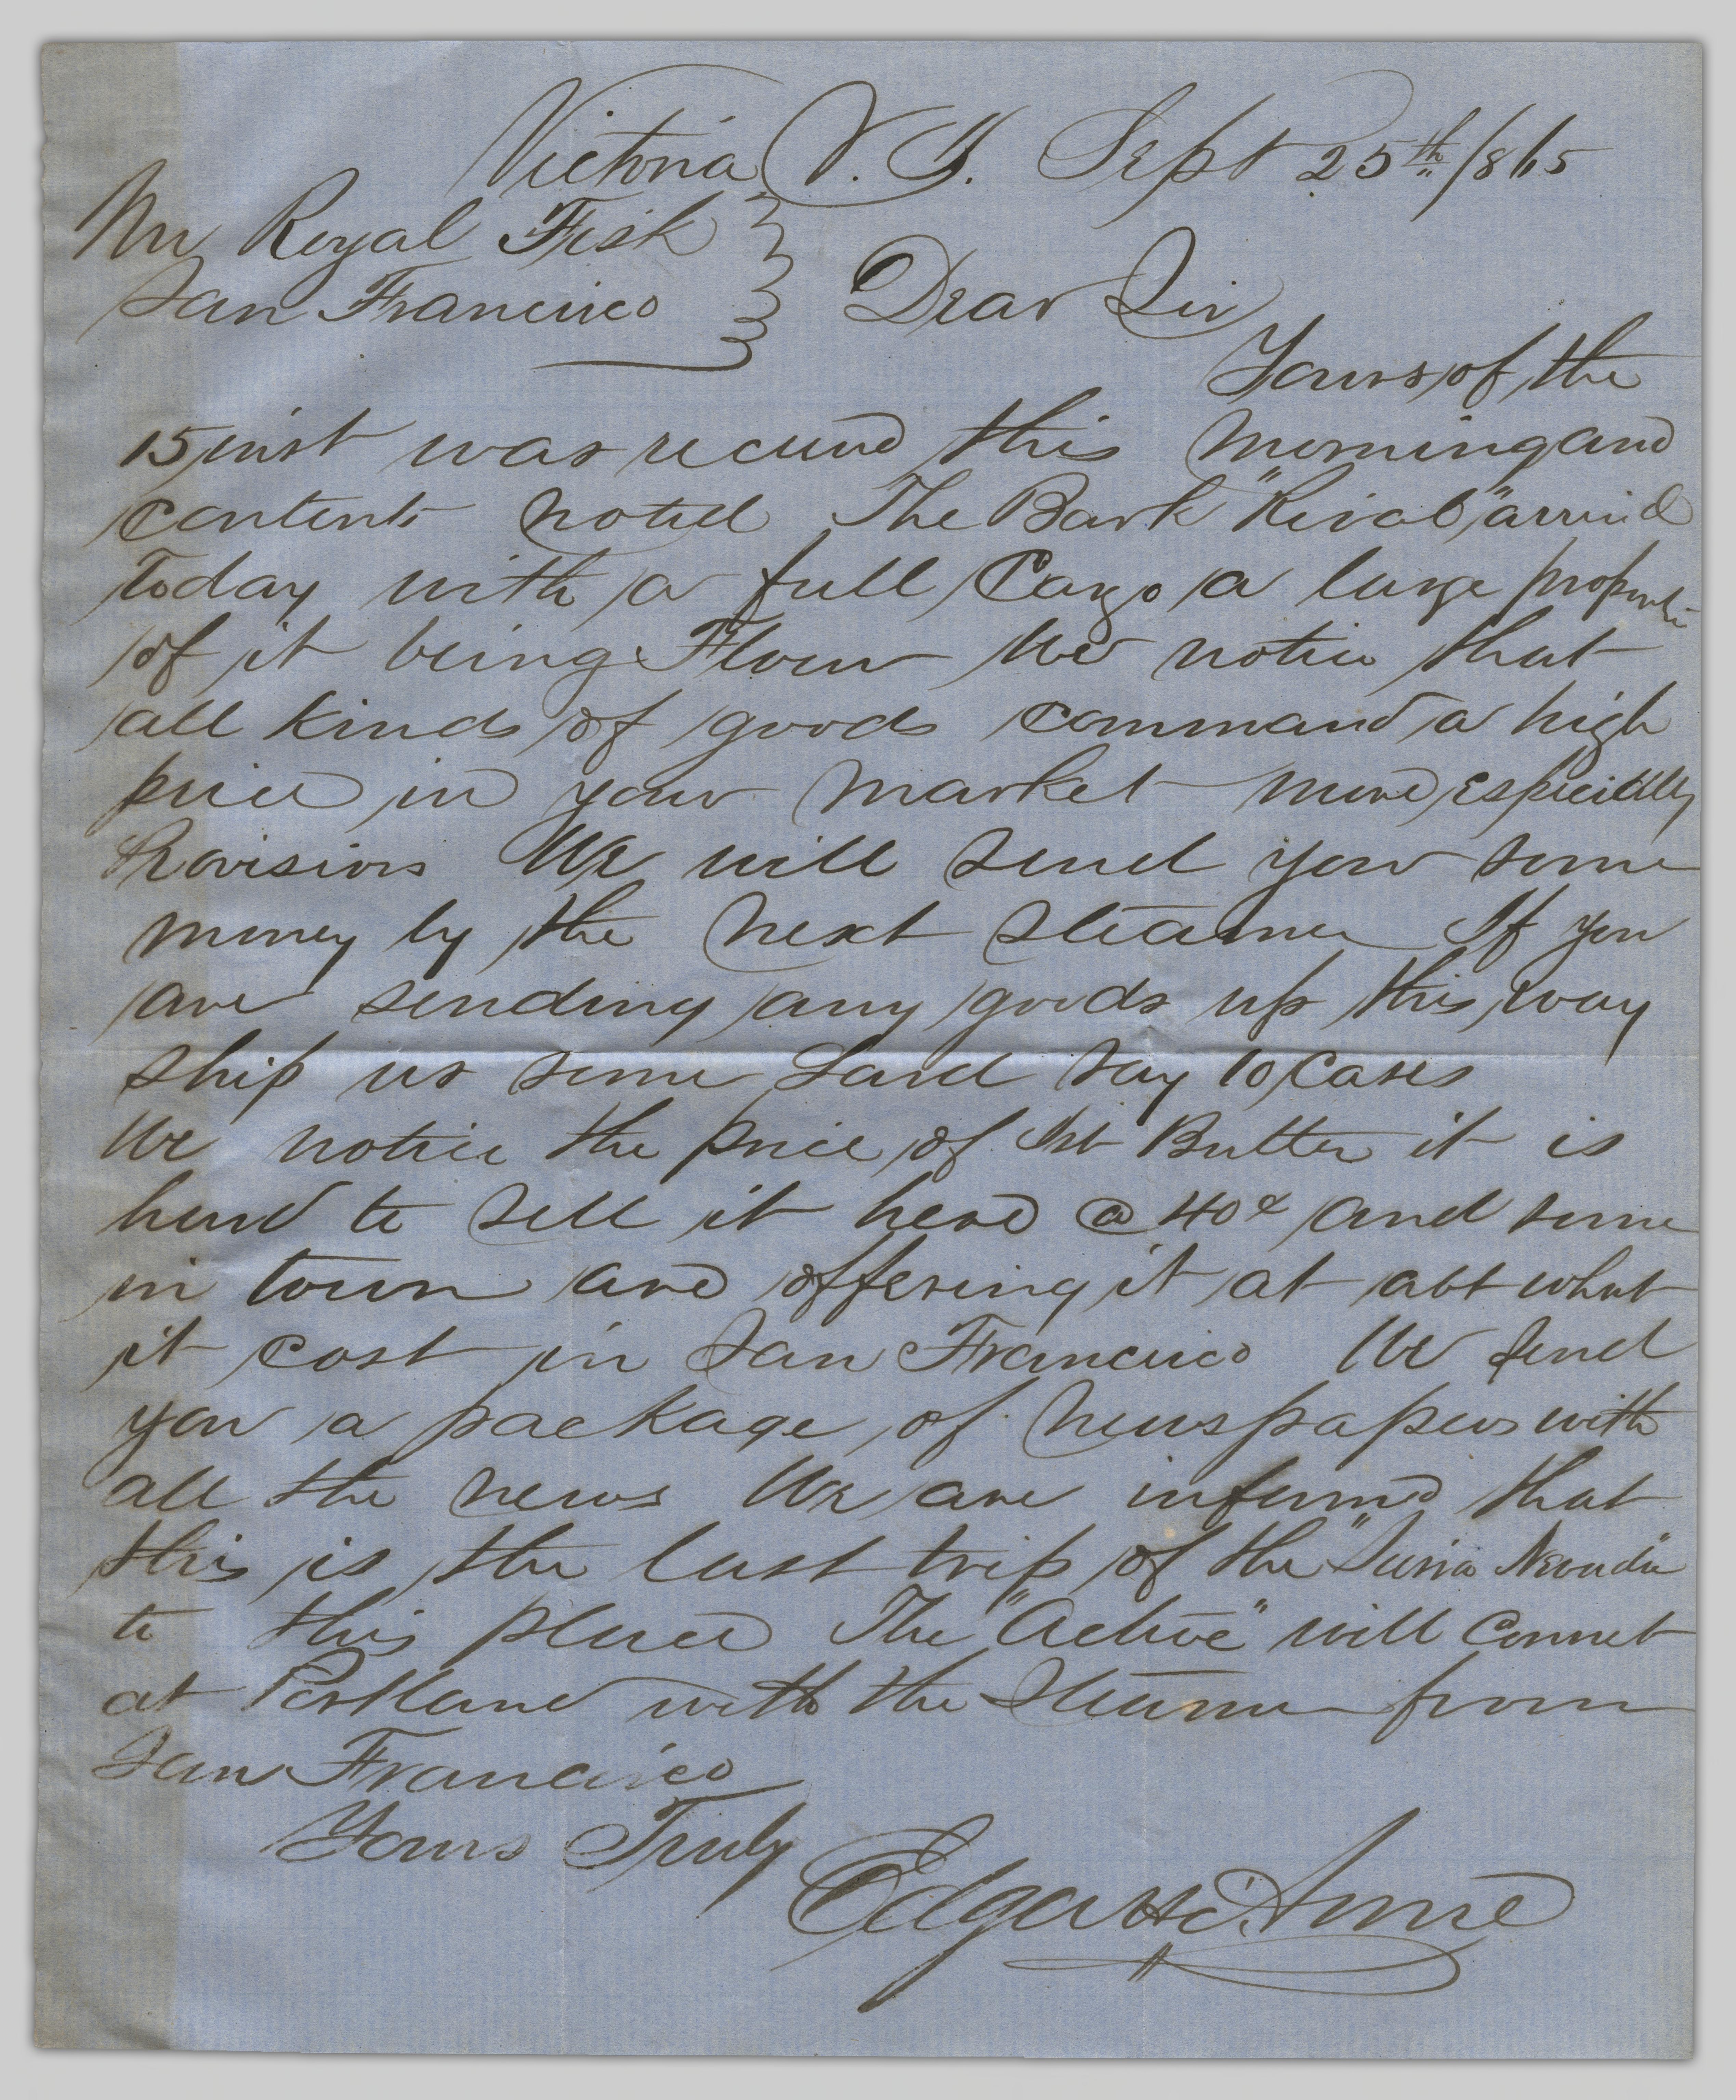 Victoria V. I. Sept 25th 1865
Mr Royal Fisk
San Francisco } Dear Sir
Yours of the
15 inst was recieved this morning and
contents noted The Bark "Rival" arrived
today with a full Cargo a large proportion
of it being Flour We notice that
all kinds of goods command a high
price in your market more especially
Provisions We will send you some
money by the next steamer If you
are sending any goods up this way
ship us some Lard say 10 Cases
We notice the price of Ist Butter it is
hard to sell it here @ 40¢ and some
in town are offering it at abt what
it cost in San Francisco We send
you a package of newspapers with
all the news We are informed that
this is the last trip of the "Sierra Nevada"
to this place The "Active" will connect
at Portland with the Steamer from
San Francisco
Yours Truly
Edgar &